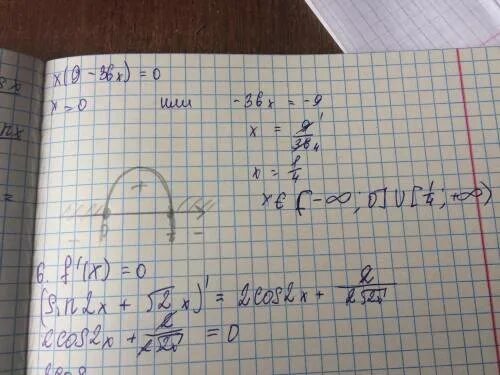 x(9 - 36x) = 0
x = 0 или -36x = -9
x = 9/36
x = 1/4
x ∈ (-∞; 0] ∪ [1/4; +∞)
+
- -
6. f'(x) = 0
(Sin2x + √2x)' = 2cos2x + 2/2√2x
2cos2x + 2/2√2x = 0